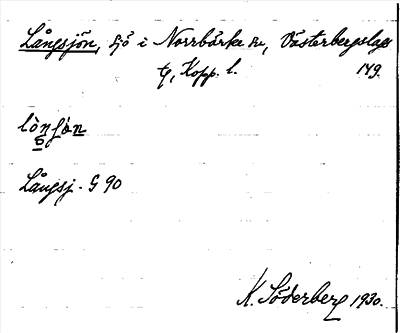 Långsjön, sjö i Norrbärke sn, Västerbergslags
tg, Kopp. l. 149.
lònʃòn
Långsj. G 90
K. Söderberg 1930.